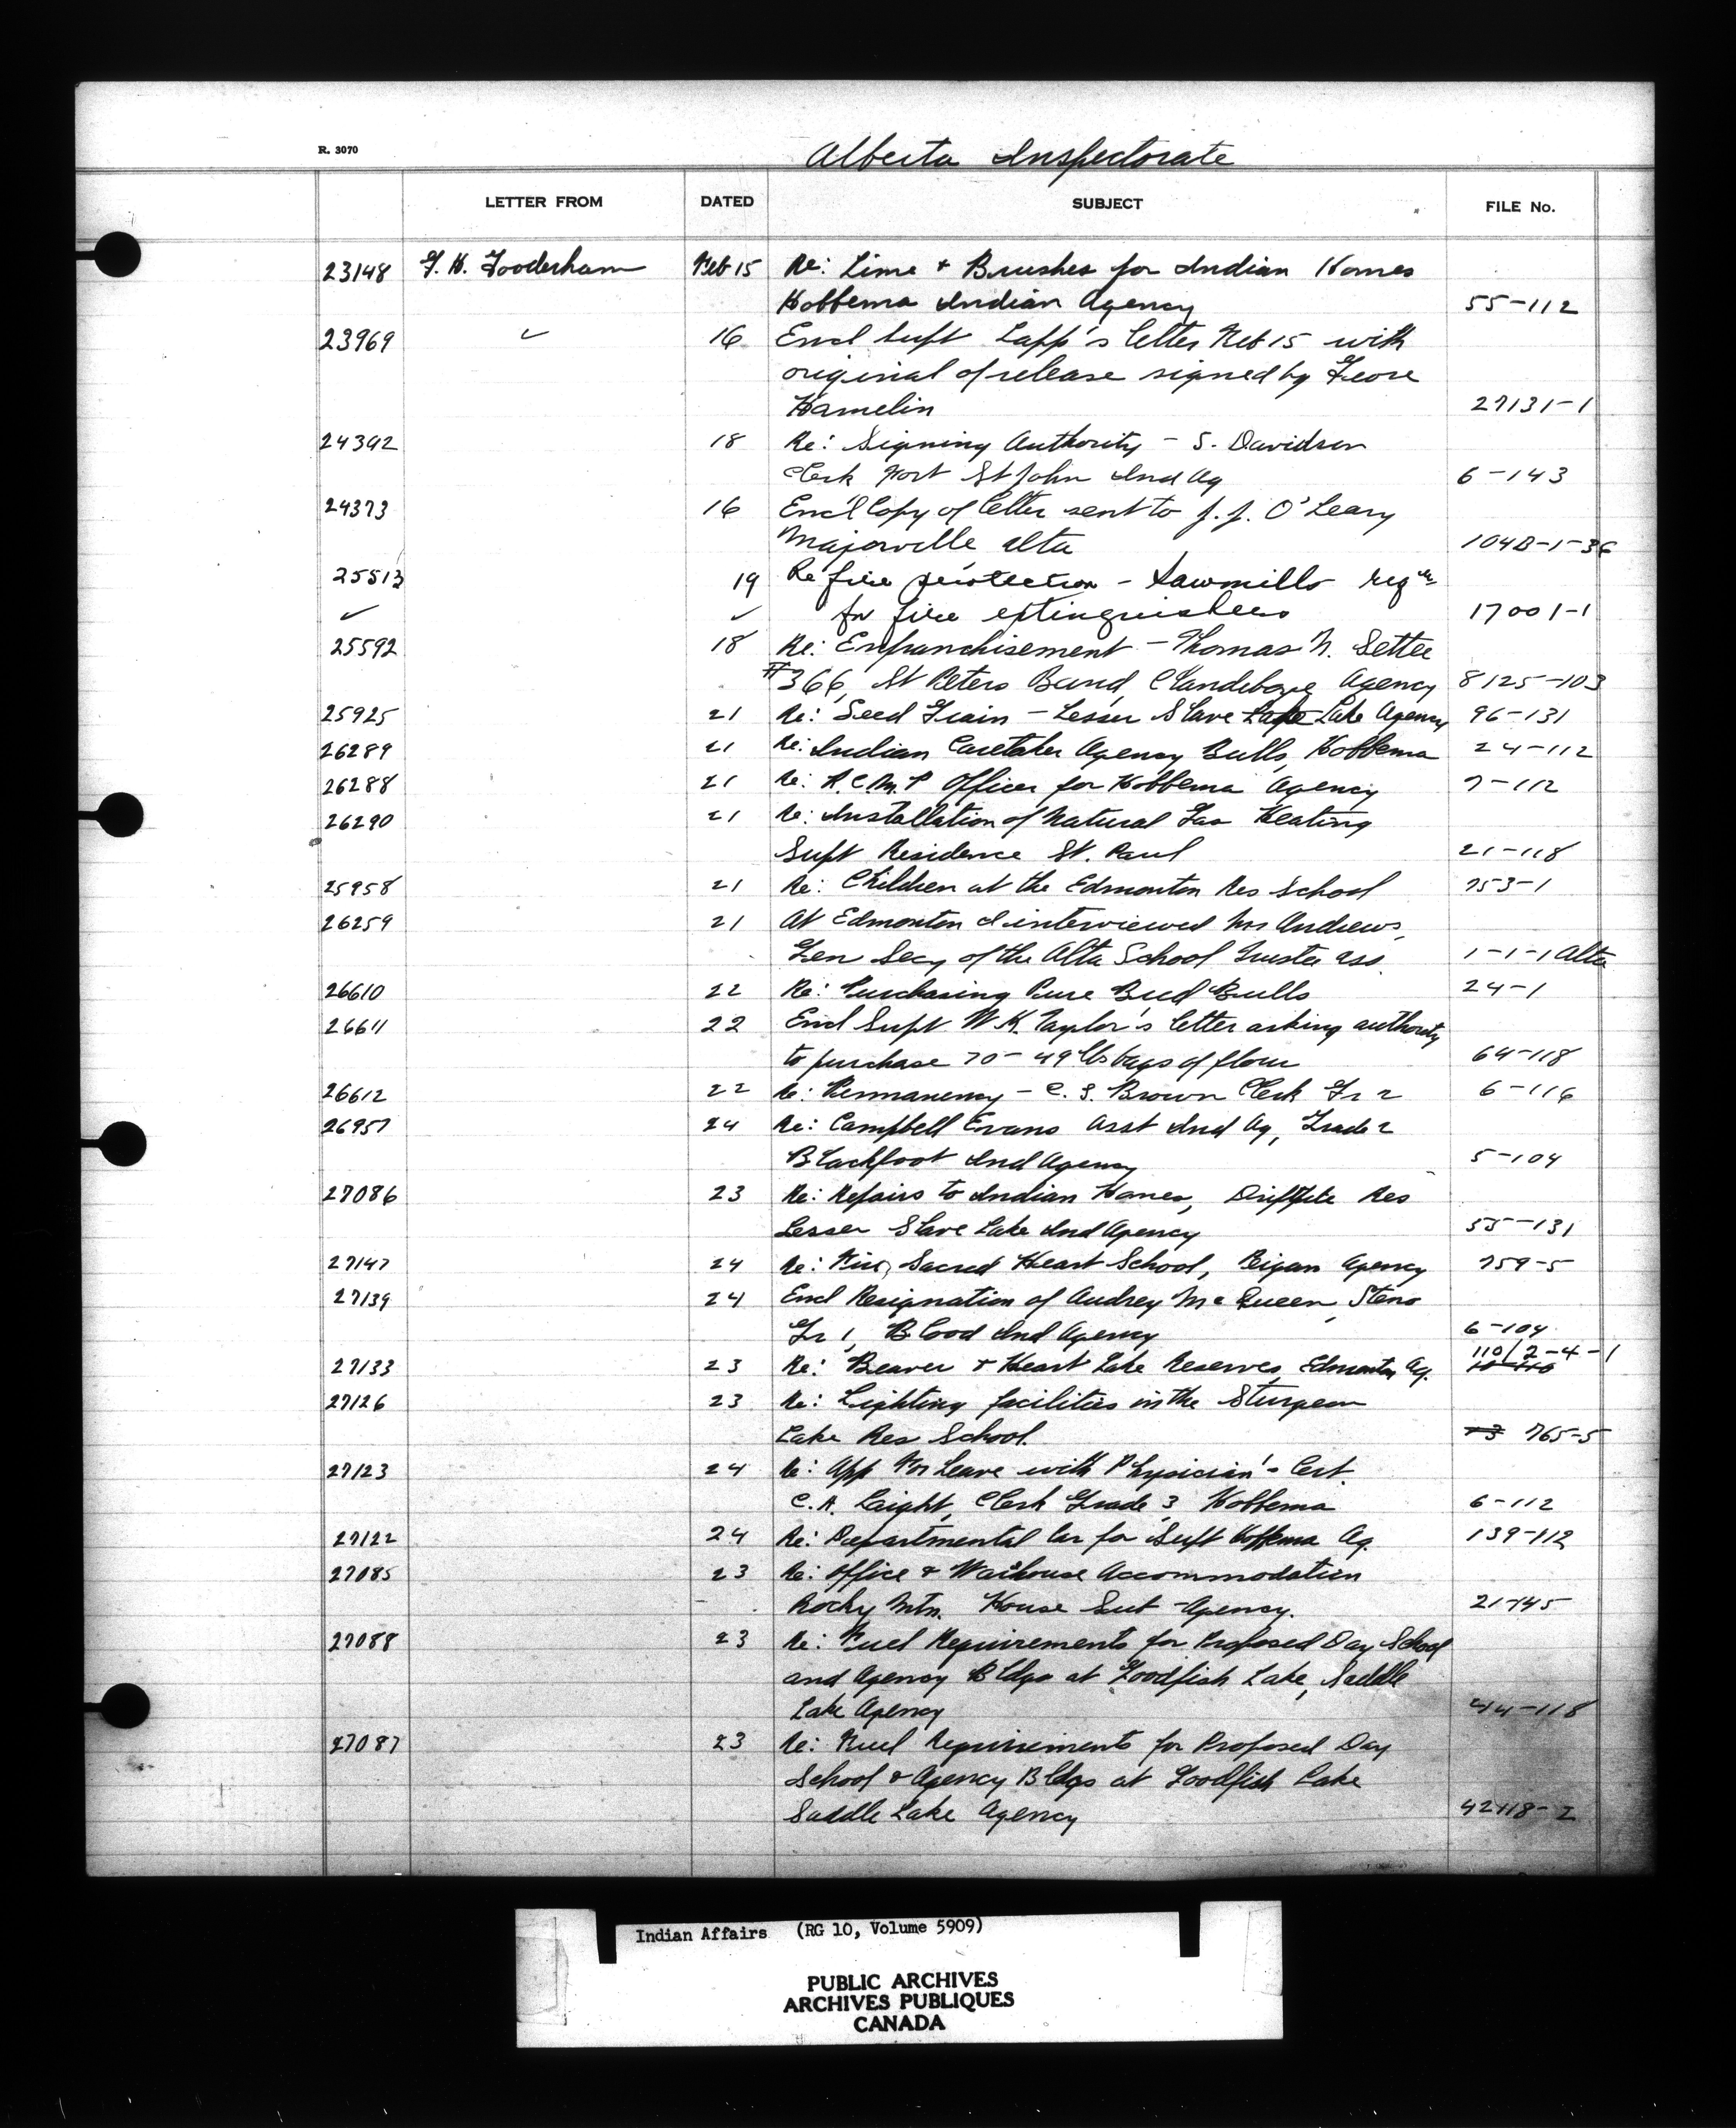 R. 3070
Alberta Inspectorate
LETTER FROM DATED SUBJECT FILE No.
23148 G. H. Gooderham Feb 15 Re: Lime & Brushes for Indian Homes
Hobbema Indian Agency 55-112
23969 ✓ 16 Encl Supt Lapp's letter Feb 15 with
original of release signed by
Hamelin 27131-1
24392 18 Re: Signing Authority - S. Davidson
Clerk Fort St John Ind Ag 6-143
24373 16 Enc'l Copy of letter sent to J. J. O'Leary
Majorville Alta 104B-1-36
25513 19 Re fire protection - Sawmills reqn
✓ ✓ for fire extinguishers 17001-1
25592 18 Re: Enfranchisement - Thomas N. Settee
#366, St Peters Band, Clandeboye Agency 8125-103
25925 21 Re: Seed Grain - Lesser Slave Lake Lake Agency 96-131
26289 21 Re: Indian Caretaker Agency Bulls, Hobbema 24-112
26288 21 Re: R.C.M.P Officer for Hobbema Agency 7-112
26290 21 Re: Installation of Natural Gas Heating
Supt Residence St. Paul 21-118
25958 21 Re: Children at the Edmonton Res School 753-1
26259 21 At Edmonton I interviewed Mrs Andrews,
Gen Secy of the Alta School Trustee Ass. 1-1-1 Alta
26610 22 Re: Purchasing Pure Bred Bulls 24-1
26611 22 Encl Supt W. K. Taylor's letter asking authority
to purchase 70 - 49 lbs bags of flour 64-118
26612 22 Re: Permanency - C. S. Brown Clerk Gr 2 6-116
26957 24 Re: Campbell Evans Asst Ind Ag, Grade 2
Blackfoot Ind Agency 5-104
27086 23 Re: Repairs to Indian Homes, Driftpile Res
Lesser Slave Lake Ind Agency 55-131
27147 24 Re: Fire, Sacred Heart School, Peigan Agency 759-5
27139 24 Encl Resignation of Audrey McQueen, Steno
Gr 1, Blood Ind Agency 6-104
27133 23 Re: Beaver & Heart Lake Reserves, Edmonton Ag. 110/2-4-1
27126 23 Re: Lighting facilities in the Sturgeon
Lake Res School. 765-5
27123 24 Re: App For Leave with Physician's Cert.
C. A. Laight, Clerk Grade 3 Hobbema 6-112
27122 24 Re: Departmental Car for Supt Hobbema Ag. 139-112
27085 23 Re: Office & Warehouse Accommodation
Rocky Mtn. House Sub-Agency. 21-145
27088 23 Re: Fuel Requirements for Proposed Day School
and Agency Bldgs at Goodfish Lake, Saddle
Lake Agency 44-118
27087 23 Re: Fuel Requirements for Proposed Day
School & Agency Bldgs at Goodfish Lake
Saddle Lake Agency 42-118-2
Indian Affairs (RG 10, Volume 5909)
PUBLIC ARCHIVES
ARCHIVES PUBLIQUES
CANADA